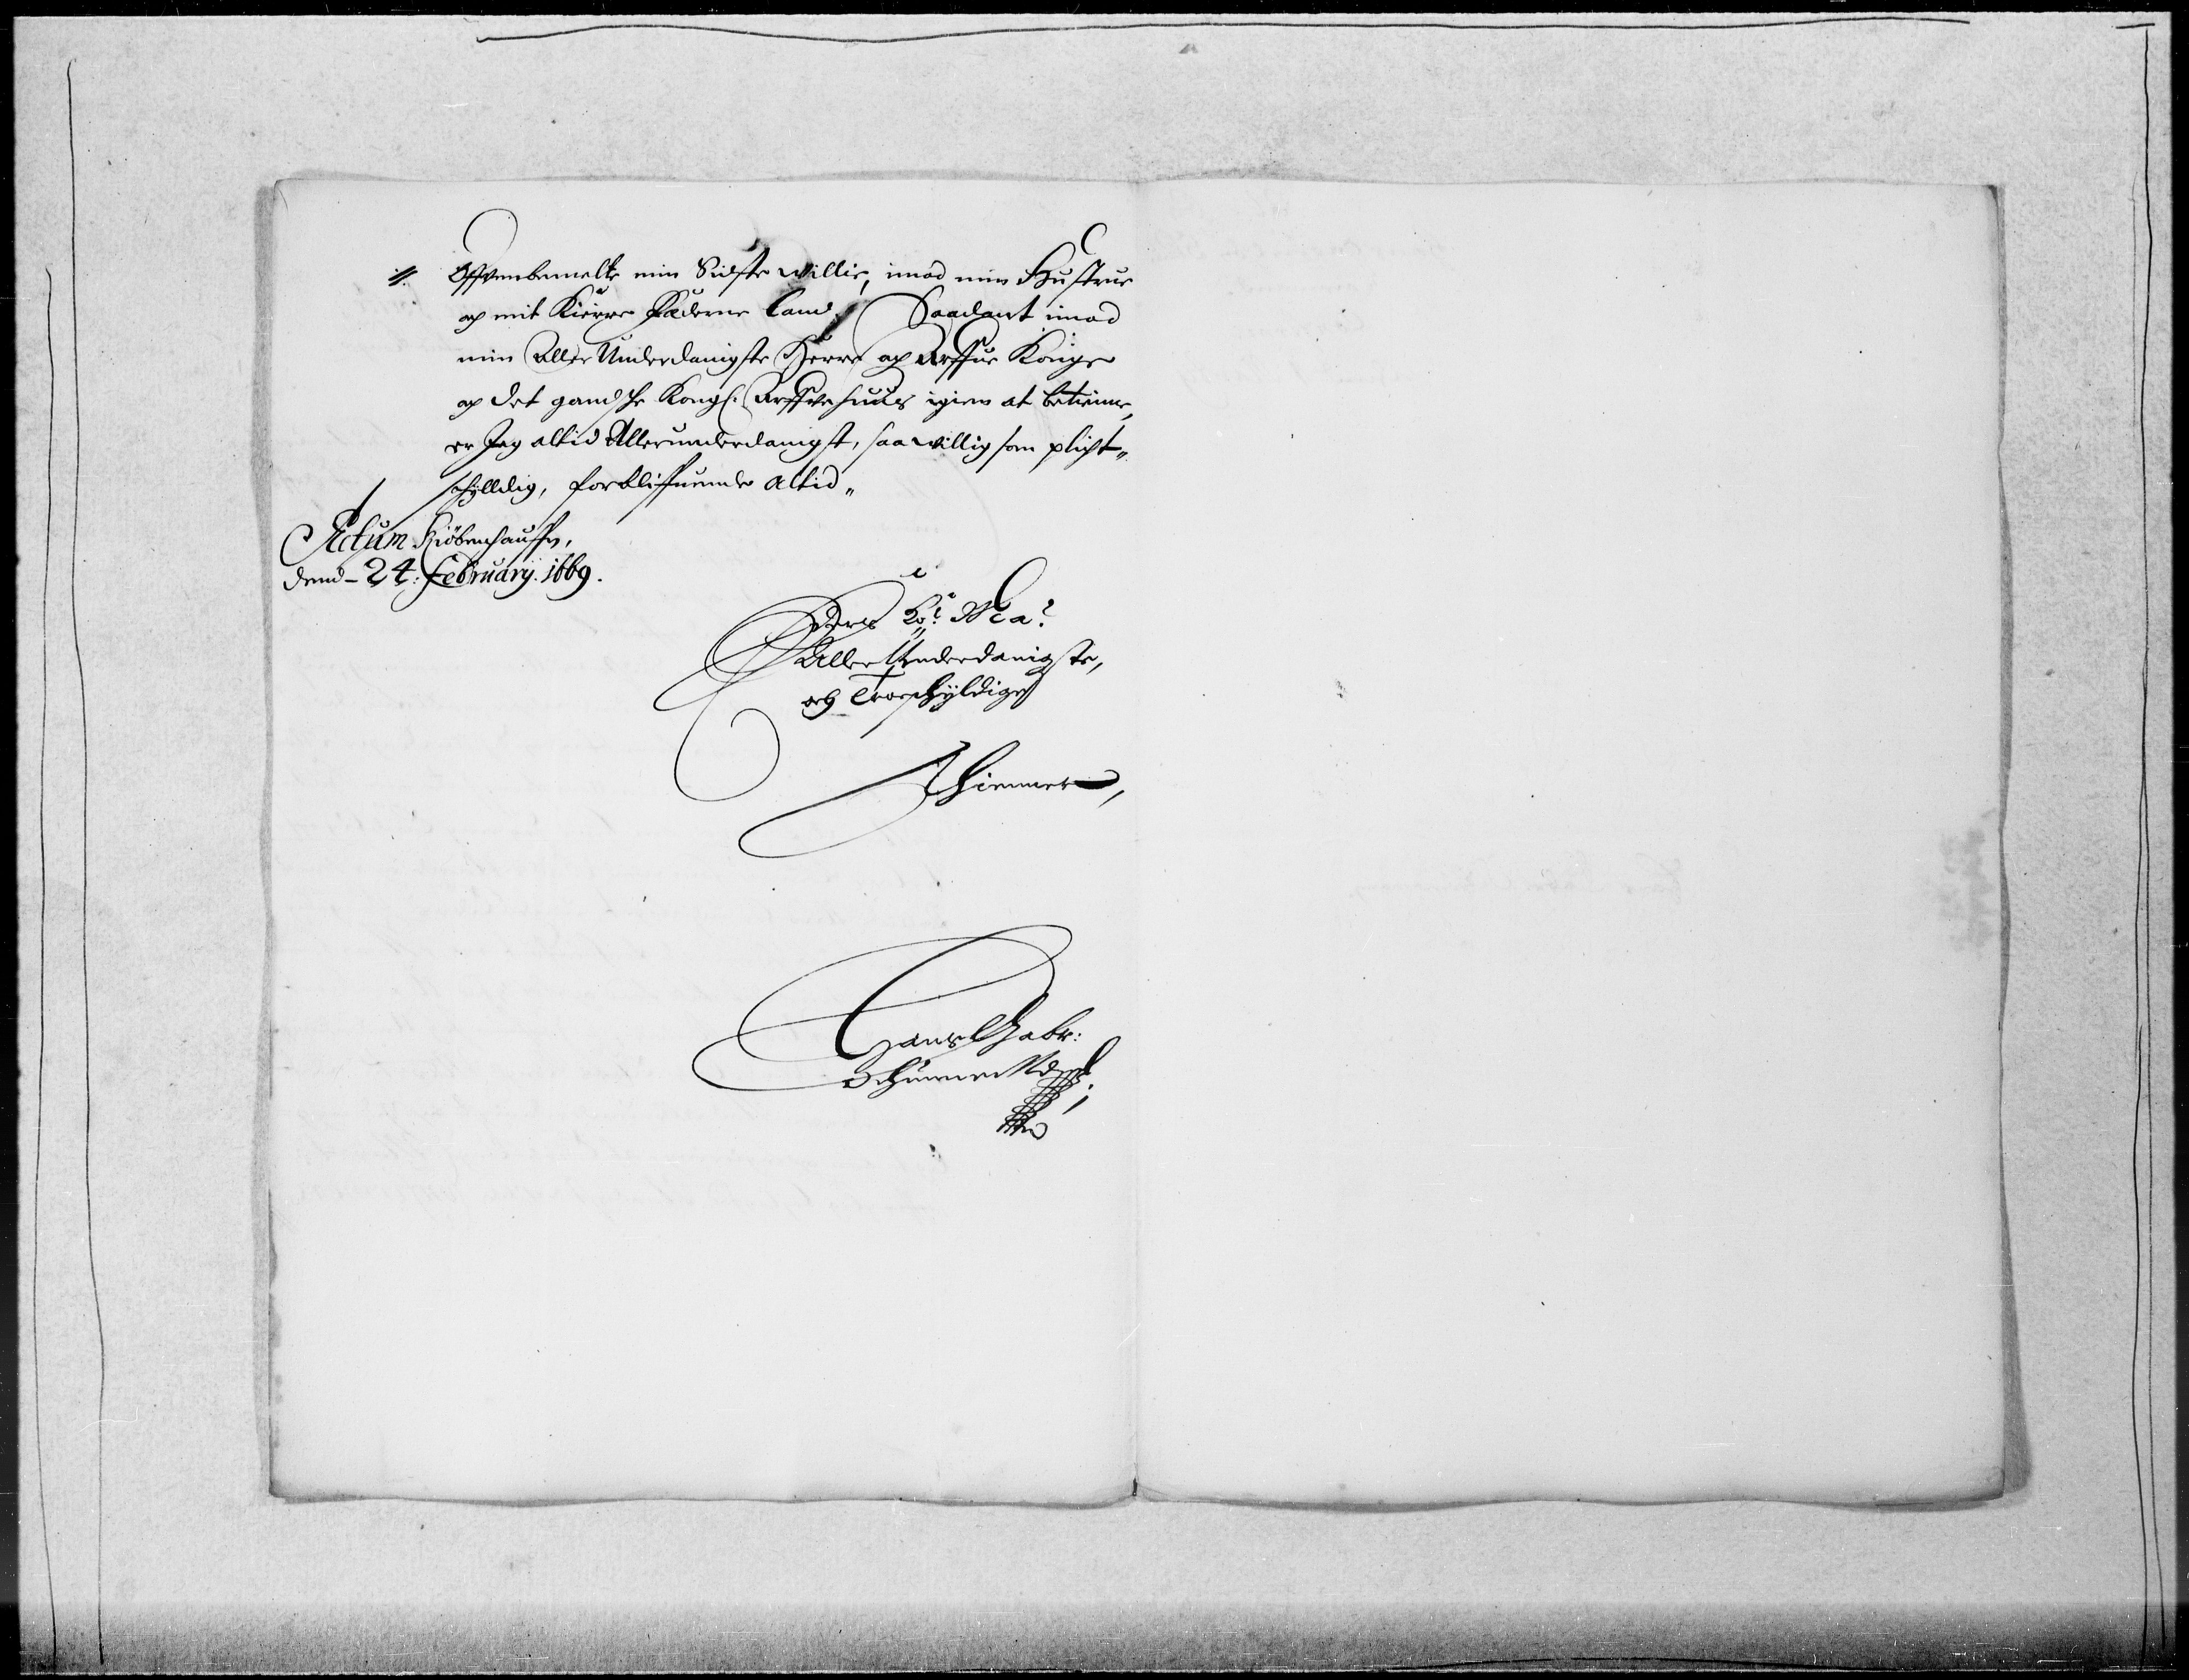 //. Offvenbemelte min Sidste willie, imod min Hustrue
og mit Kierre Fæderne land. Saadant imod
min Aller Underdanigste Herre og Arffue Konge
og det gandsche Kongl. Arffvehuus igien at betienne,
er Jeg altid Allerunderdanigst, saa willig som plicht„
schylldig, forbliffuende altid„
Actum Kiöbenhauffn,
dend - 24: February. 1669.
Ders Ko: Ma:
Aller Underdanigste,
och Troeschyldige
Thienner,
Hans Gabr: